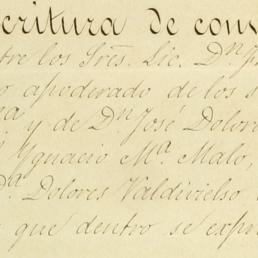 critura de conv
tre los Sres. Lic. Dn. J
o apoderado de los s
y de Dn. José Dolor
Ygnacio Ma. Malo,
Da. Dolores Valdivielso
que dentro se expr